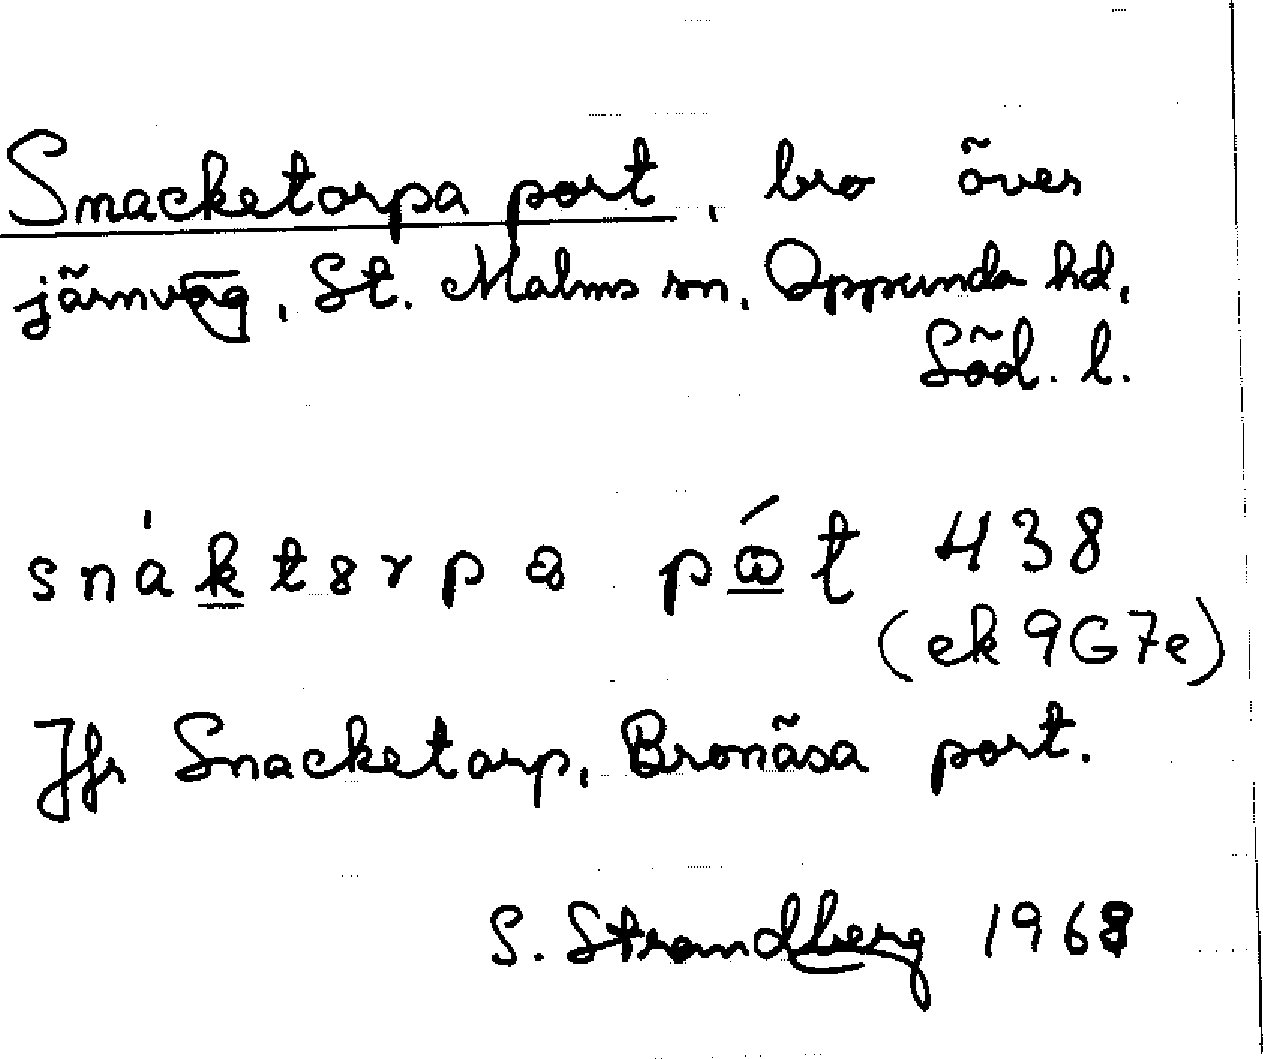 Snacketorpa port, bro över
järnväg, St. Malms sn, Oppunda hd,
Söd. l.
438
(ek 9G7e)
Jfr Snacketorp, Bronäsa port.
S. Strandberg 1968